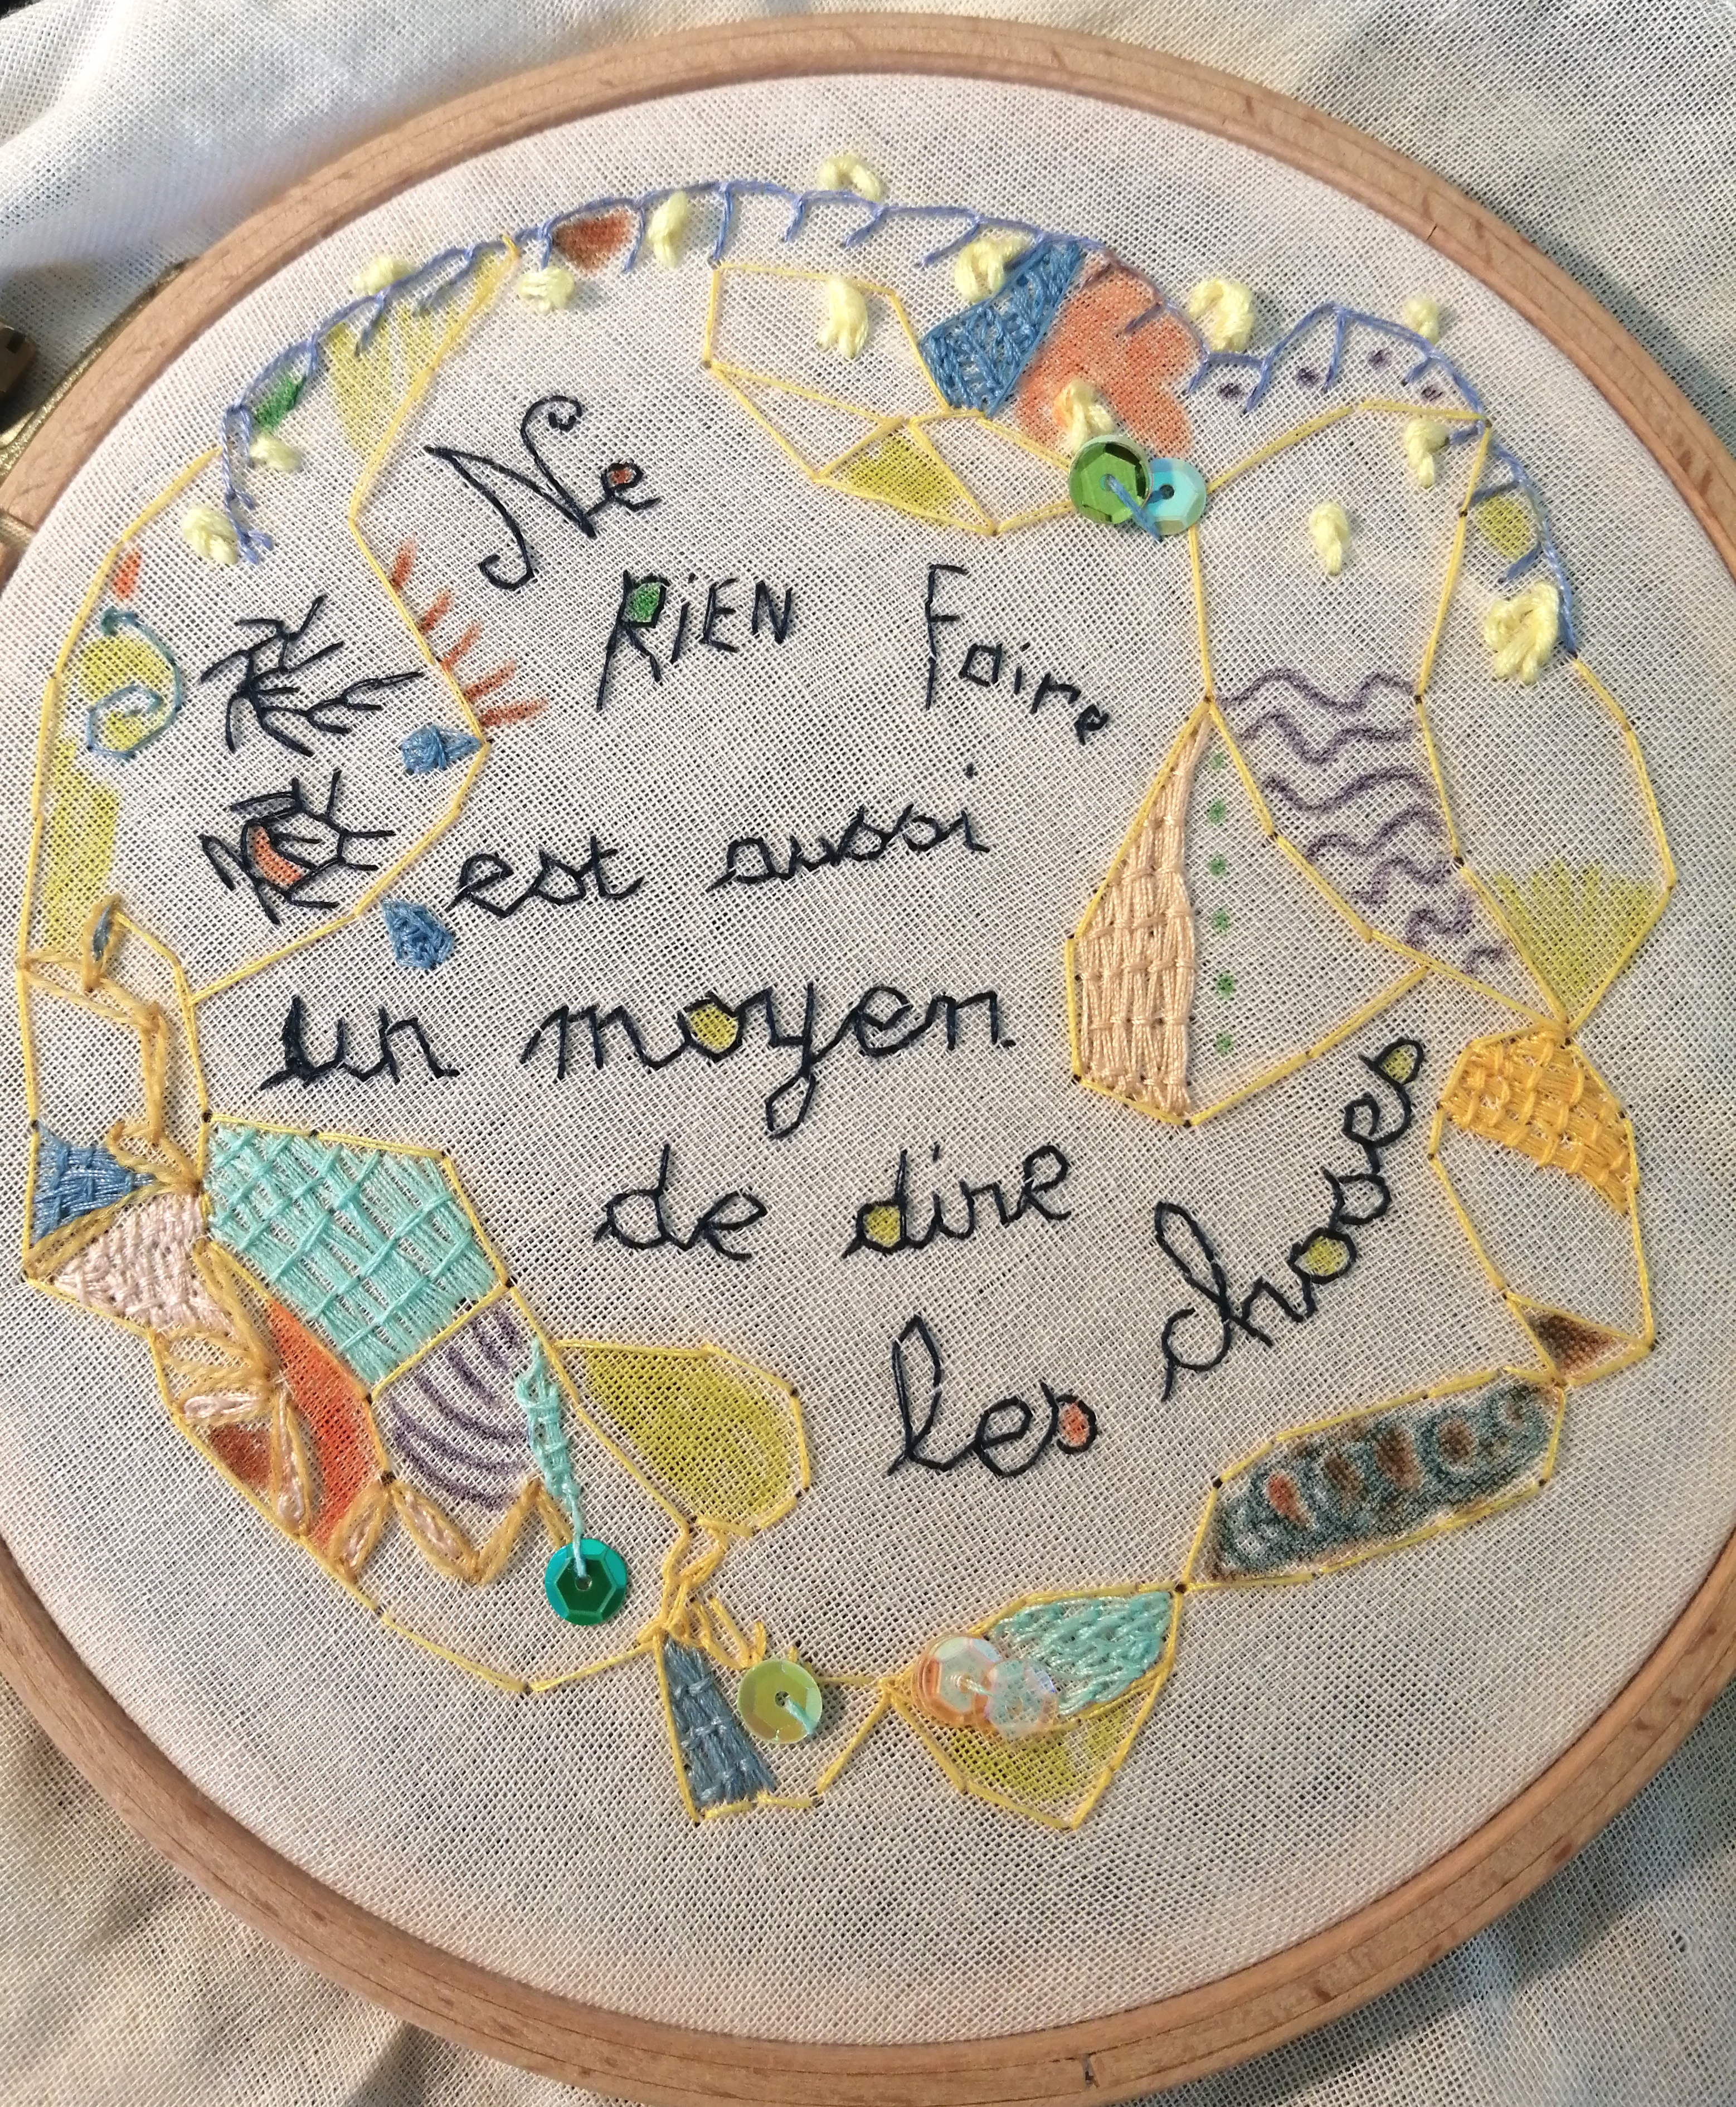 Ne
RiEN Faire
est aussi
un moyen
de dire
les choses